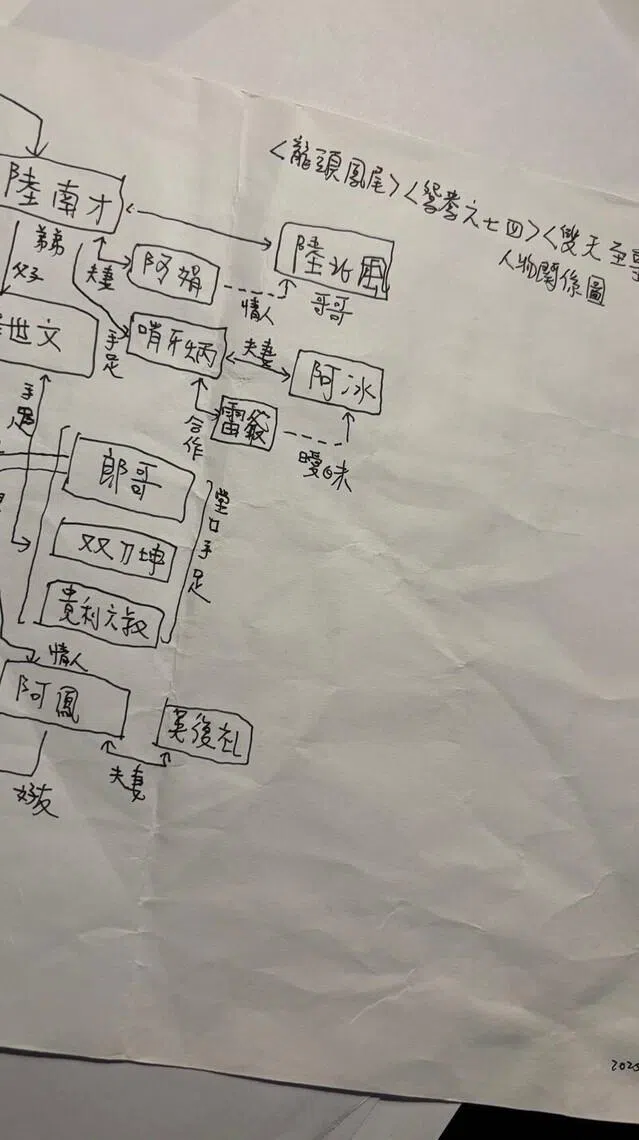 <龍頭鳳尾><鴛鴦六七四><雙天至尊
人物關係圖
陸南才
弟弟
陸北風
哥哥
夫妻
阿娟
情人
父子
世文
手足
哨牙炳
夫妻
阿冰
手足
合作
雷爺
曖昧
郎哥
双刀坤
貴利六叔
堂口手足
情人
阿鳳
夫妻
好友
202